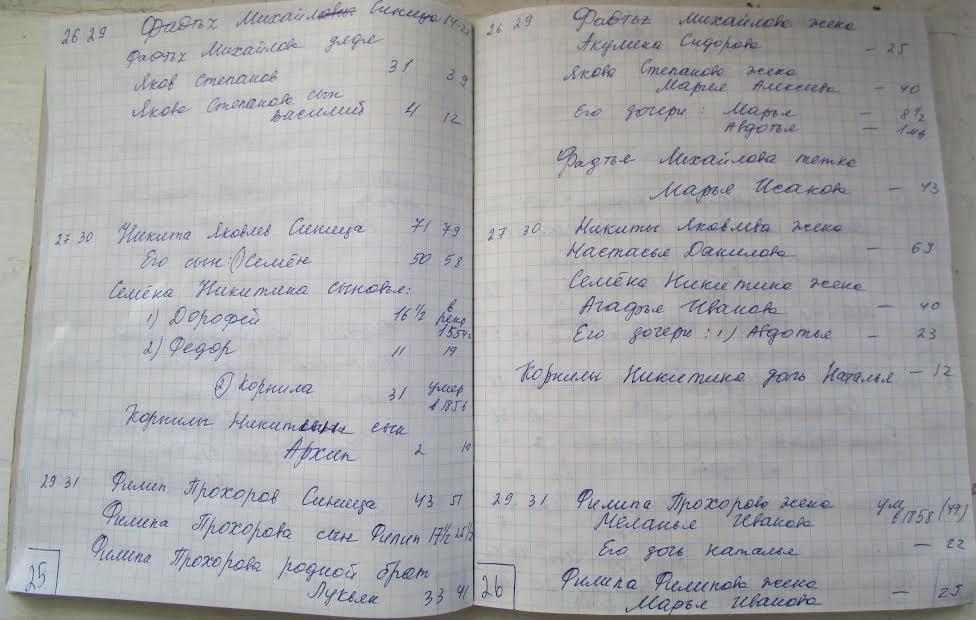 26 29 Фадтьх Михайлович Синица 14 22
Фадтьх Михайлова дядя
Яков Степанов 31 39
Якова Степанова сын
Василий 4 12
27 30 Никита Яковлев Синица 71 79
Его сын: 1) Семён 50 58
Семёна Никитина сыновья:
1) Дорофей 16 1/2 в рекр 1854г
2) Федор 11 19
2) Корнила 31 умер в 1856
Корнилы Никитина сын
Архип 2 10
29 31 Филип Прохоров Синица 43 51
Филипа Прохорова сын Филип 17 1/2 25 1/2
Филипа Прохорова родной брат
Лукьян 33 41
25
26 29 Фадтьх Михайлова жена
Акулина Сидорова – 25
Якова Степанова жена
Мария Алексеева – 40
Его дочери: Марья – 8 1/2
Авдотья – 1 мц
Фадтья Михайлова тетка
Марья Исакова – 43
27 30 Никиты Яковлева жена
Настасья Данилова – 69
Семёна Никитина жена
Агафья Иванова – 40
Его дочери: 1) Авдотья – 23
Корнилы Никитина дочь Наталья – 12
29. 31 Филипа Прохорова жена
Меланья Иванова ум в 1858 (49)
Его дочь Наталья – 22
Филипа Филипова жена
Марья Иванова – 25
26